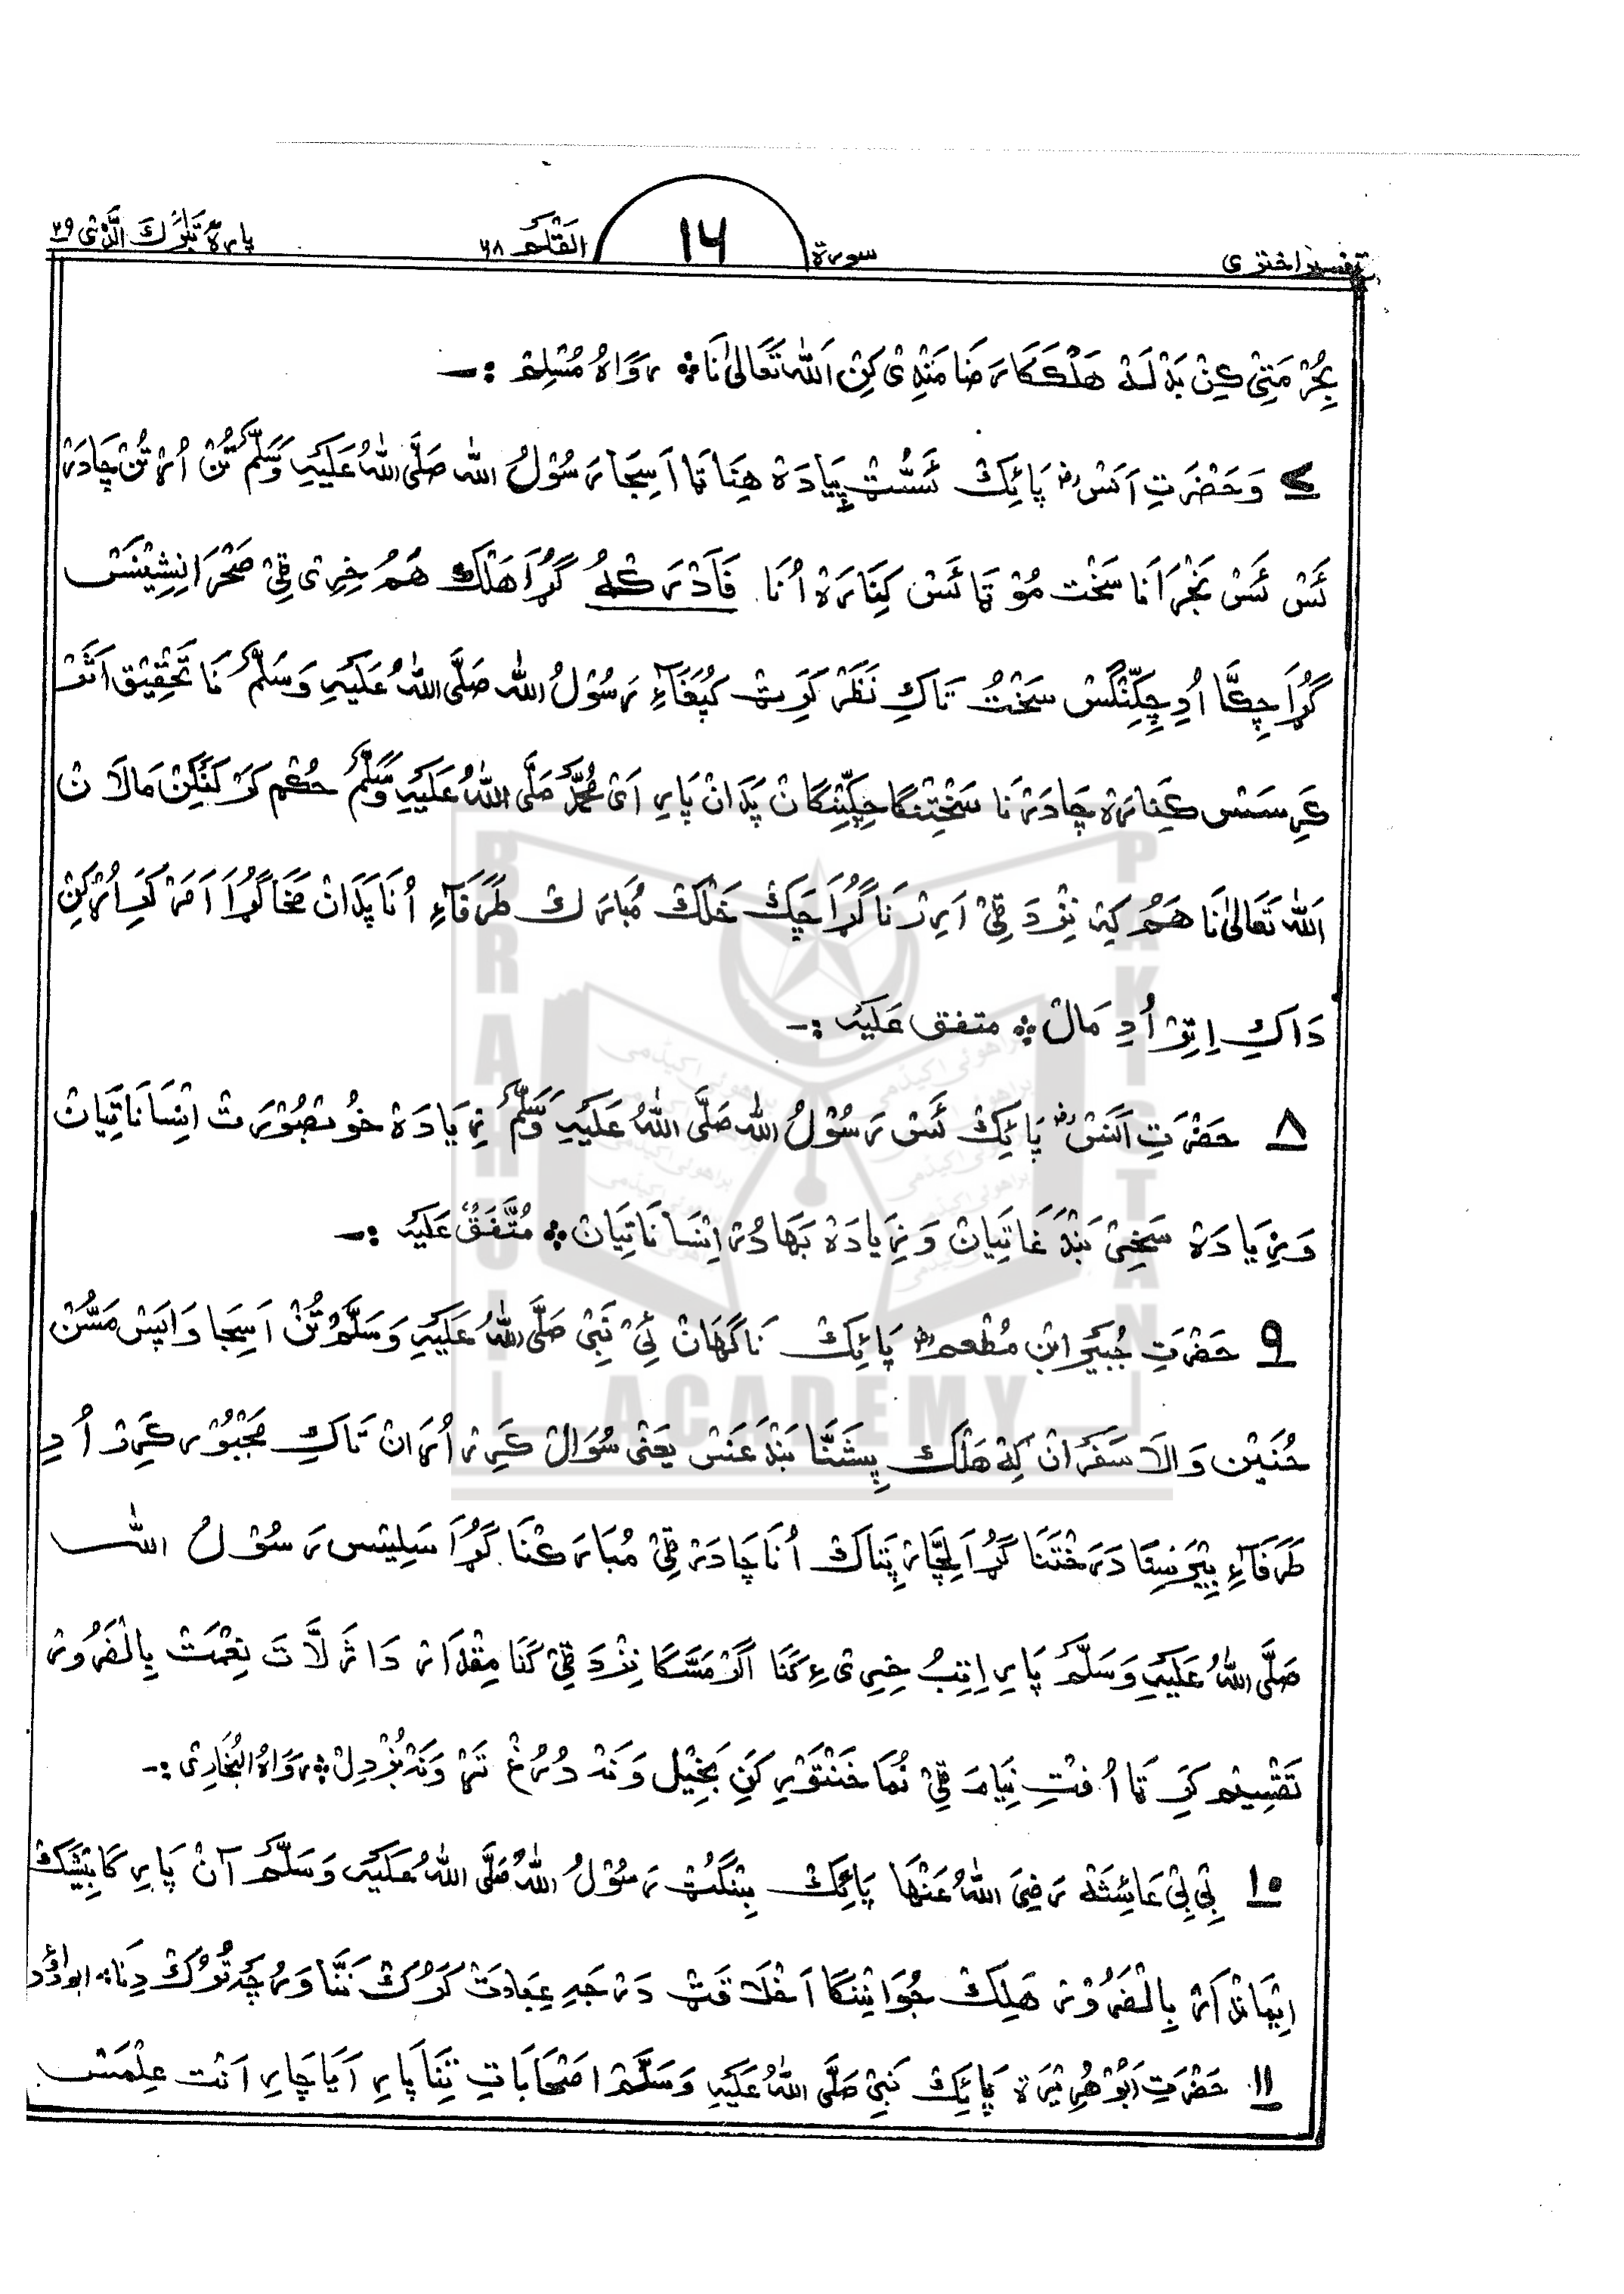 تفسیر اختری سورة ١٦ القلم ٦٨ پارہ تَبٰرَكَ الَّذِیْ ٢٩
بِحُرْ مَتِیْ کِنْ بَدْلَہْ هَلْکَکَا رَضَا مَنْدِیْ کِنْ اَللّٰہ تَعَالیٰ نَا ؞ رَوَاہُ مُسْلِمْ :ـ
٧ وَحَضْرَتِ اَنَسْ رضہ پَائِکْ نَسُّٹْ پِیَادَہْ هِنَا تَا اَسِجَا رَسُوْلُ اللّٰہ صَلَّی اللّٰہُ عَلَیْہِ وَسَلَّمْ تُنْ اُرْتُنْ چَادَرْ
ئَسْ ئَسْ نَجْرَانَا سَخْت مُوْتَا ئَسْ کِنَارَہْ اُنَا. فَاَدْرَکَہُ گُڑَا هَلْکْ هَمُ خِرِیْ ٹِیْ صَحْرَا نِشِیْنَسْ
گُڑَا چِکَّا اُدِ چِکِّنْگَسْ سَخْتُ تَاکِ نَظَرْ کَرِٹْ کُپَغَاءِ رَسُوْلُ اللّٰہ صَلَّی اللّٰہُ عَلَیْہِ وَسَلَّمْ نَا تَحْقِیْق اَثَرْ
کَرِسَسْ کِنَارَہْ چَادَرْ نَا سَخْتِنْگَا چِکِّنِگَانْ پَدَانْ پَارِ اَیْ مُحَمَّدْ صَلَّی اللّٰہُ عَلَیْہِ وَسَلَّمْ حُکْم کَرْ کَنْکِنْ مَالَاتْ
اَللّٰہ تَعَالیٰ نَا هَمُرْ کِہ نِزْدَ ٹِیْ اَرِرْ نَا گُڑَا چَکْ خَلْکْ مُبَارَك طَرَفَآءِ اُنَا پَدَانْ مَخَا گُڑَا اَمَرْ کَرِ اُرْکِنْ
دَاکِ اِتِرْ اُدِ مَالْ ؞ متفق عَلَیْہ :ـ
٨ حَضْرَتِ اَنَسْ رضہ پَائِکْ ئَسْ رَسُوْلُ اللّٰہ صَلَّی اللّٰہُ عَلَیْہِ وَسَلَّمْ زِیَادَہْ خُوبْصُوْرَتْ اِنْسَانَاتِیَانْ
وَ زِیَادَہْ سَخِیْ بَنْدَغَاتِیَانْ وَ زِیَادَہْ بَهَادُرْ اِنْسَانَاتِیَانْ ؞ مُتَّفَقٌ عَلَیْہ :ـ
٩ حَضْرَتِ جُبَیْر ابْنِ مُطْعم رضہ پَائِکْ نَاگَهَانْ ئِیْ نَبِیْ صَلَّی اللّٰہُ عَلَیْہِ وَسَلَّمْ تُنْ اَسِجَا وَاپَسْ مَسُّنْ
حُنَیْن وَالَا سَفَرَانْ کِہْ هَلْکْ پِشَنَّا بَنْدَغَسْ یَعْنِیْ سُوَالْ کَرِرْ اُرَانْ تَاکِ مَجْبُوْر کَرِرْ اُدِ
طَرَفَآءِ بِیْرَسِنَا دَرَخْتَنَا گُڑَا لِچَّارْ پَنَاکْ اُنَا چَادَرْ ٹِیْ مُبَارَکْنَا گُڑَا سَلِیْس رَسُوْلُ اللّٰہ
صَلَّی اللّٰہُ عَلَیْہِ وَسَلَّمْ پَارِ اِتِبُ خِرِیْ ءِ کَنَا اَگَرْ مَسَّکَا نِزْدَ ٹِیْ کَنَا مِقْدَارْ دَا ثَرلَّاتَ نِعْمَتْ بِالْضَرُوْرْ
تَقْسِیْم کَرِ تَا اُفْتِ نِیَامَ ٹِیْ نُمَا خَنْتَوْرِ کَنِ بَخِیْل وَنَہْ دُرُغْ تَرْ وَنَہْ بُزْدِلْ ؞ رَوَاہُ الْبُخَارِیْ :ـ
١٠ بِیْ بِیْ عَائِشَہْ رَضِیَ اللّٰہُ عَنْهَا پَائِکْ بِنْگُٹْ رَسُوْلُ اللّٰہُ صَلَّی اللّٰہُ عَلَیْہِ وَسَلَّمْ آنْ پَارِکَا بِیْشَکْ
اِیْمَانْدَارْ بِالْضَرُوْرْ هَلِکْ جُوَانِنْگَا اَخْلَاقَٹْ دَرْجَہِ عِبَادَتْ کَرُوْکْ نَنَّا وَ رُچَہ تُوْرُکْ دِنَا ؞ ابوداؤد
١١ حَضْرَتِ اَبُوْهُرِیْرَہ پَائِکْ نَبِیْ صَلَّی اللّٰہُ عَلَیْہِ وَسَلَّمْ اَصْحَابَاتِ تِنَا پَارِ اَیَا چَارِ اَنْت عِلْمَسْ
BRAHUI ACADEMY PAKISTAN